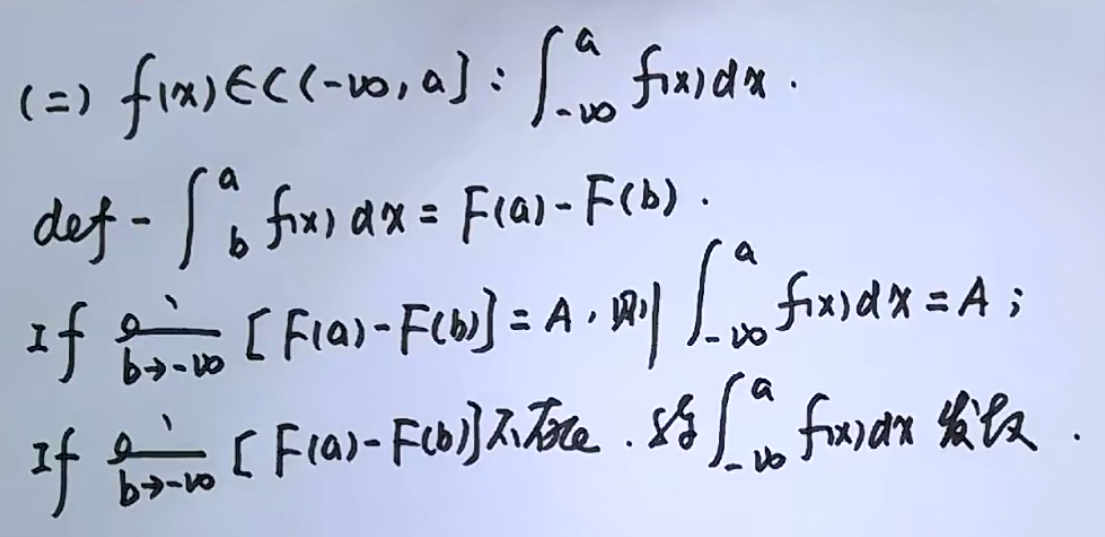 (二) f(x)∈C(-∞, a]: ∫_{-∞}^{a} f(x)dx.
def - ∫_{b}^{a} f(x)dx = F(a) - F(b).
If lim_{b→-∞} [F(a) - F(b)] = A, 则 ∫_{-∞}^{a} f(x)dx = A;
If lim_{b→-∞} [F(a) - F(b)] 不存在. 则 ∫_{-∞}^{a} f(x)dx 发散.